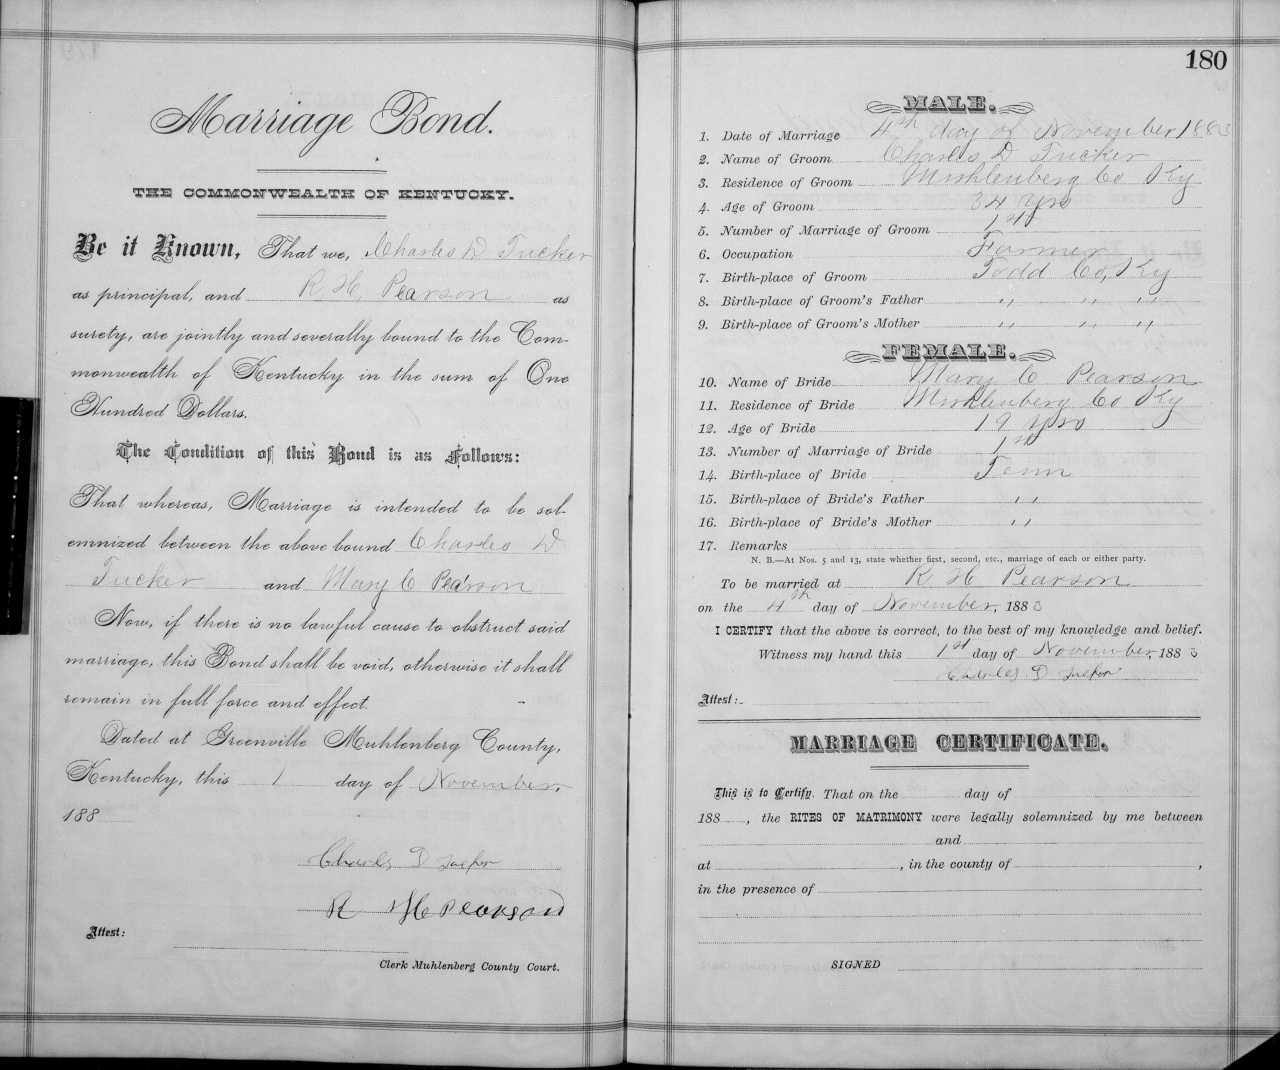 Marriage Bond.
THE COMMONWEALTH OF KENTUCKY.
Be it Known, That we, Charles D Tucker
as principal, and R. H. Pearson as
surety, are jointly and severally bound to the Com-
monwealth of Kentucky in the sum of One
Hundred Dollars.
The Condition of this Bond is as Follows:
That whereas, Marriage is intended to be sol-
emnized between the above bound Charles D
Tucker and Mary C Pearson
Now, if there is no lawful cause to obstruct said
marriage, this Bond shall be void, otherwise it shall
remain in full force and effect.
Dated at Greenville Muhlenberg County,
Kentucky, this 1 day of November,
188
Charles D
R H Pearson
Attest:
Clerk Muhlenberg County Court.
180
MALE.
1. Date of Marriage 4th day of November 1883
2. Name of Groom Charles D Tucker
3. Residence of Groom Muhlenberg Co Ky
4. Age of Groom 34 yrs
5. Number of Marriage of Groom 1st
6. Occupation Farmer
7. Birth-place of Groom Todd Co, Ky
8. Birth-place of Groom's Father " " "
9. Birth-place of Groom's Mother " " "
FEMALE.
10. Name of Bride Mary C Pearson
11. Residence of Bride Muhlenberg Co Ky
12. Age of Bride 19 yrs
13. Number of Marriage of Bride 1st
14. Birth-place of Bride Tenn
15. Birth-place of Bride's Father "
16. Birth-place of Bride's Mother "
17. Remarks
N. B.—At Nos. 5 and 13, state whether first, second, etc., marriage of each or either party.
To be married at R H Pearson
on the 4th day of November, 1883
I CERTIFY that the above is correct, to the best of my knowledge and belief.
Witness my hand this 1st day of November, 1883
Charles D
Attest:
MARRIAGE CERTIFICATE.
This is to Certify, That on the day of
188 , the RITES OF MATRIMONY were legally solemnized by me between
and
at , in the county of ,
in the presence of
SIGNED